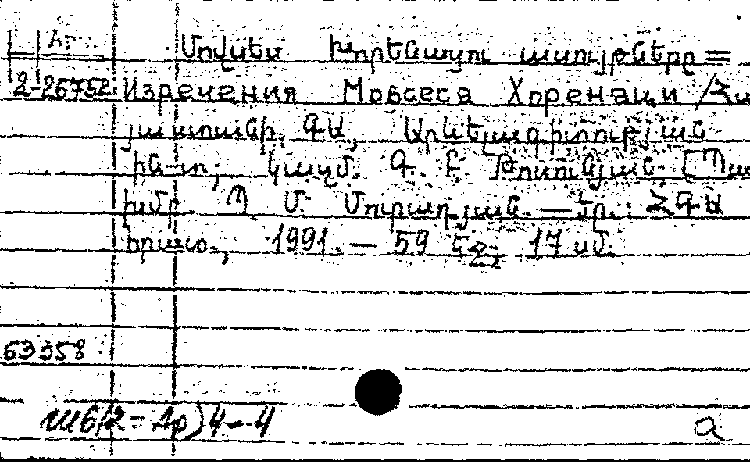 Ար
Մովսես Խորենացու ասույթները =
2-26752 Изречения Мовсеса Хоренаци / Հա
յաստանի. ԳԱ, Արևելագիտության
ին-տ; Կազմ. Գ. Է. Թոսունյան [Պա
խմբ. Պ. Մ. Մուրադյան. — Եր.: ՀԳԱ
հրատ., 1991. — 59 էջ; 17 սմ.
63358
ա6(2=Ар)4-4
a